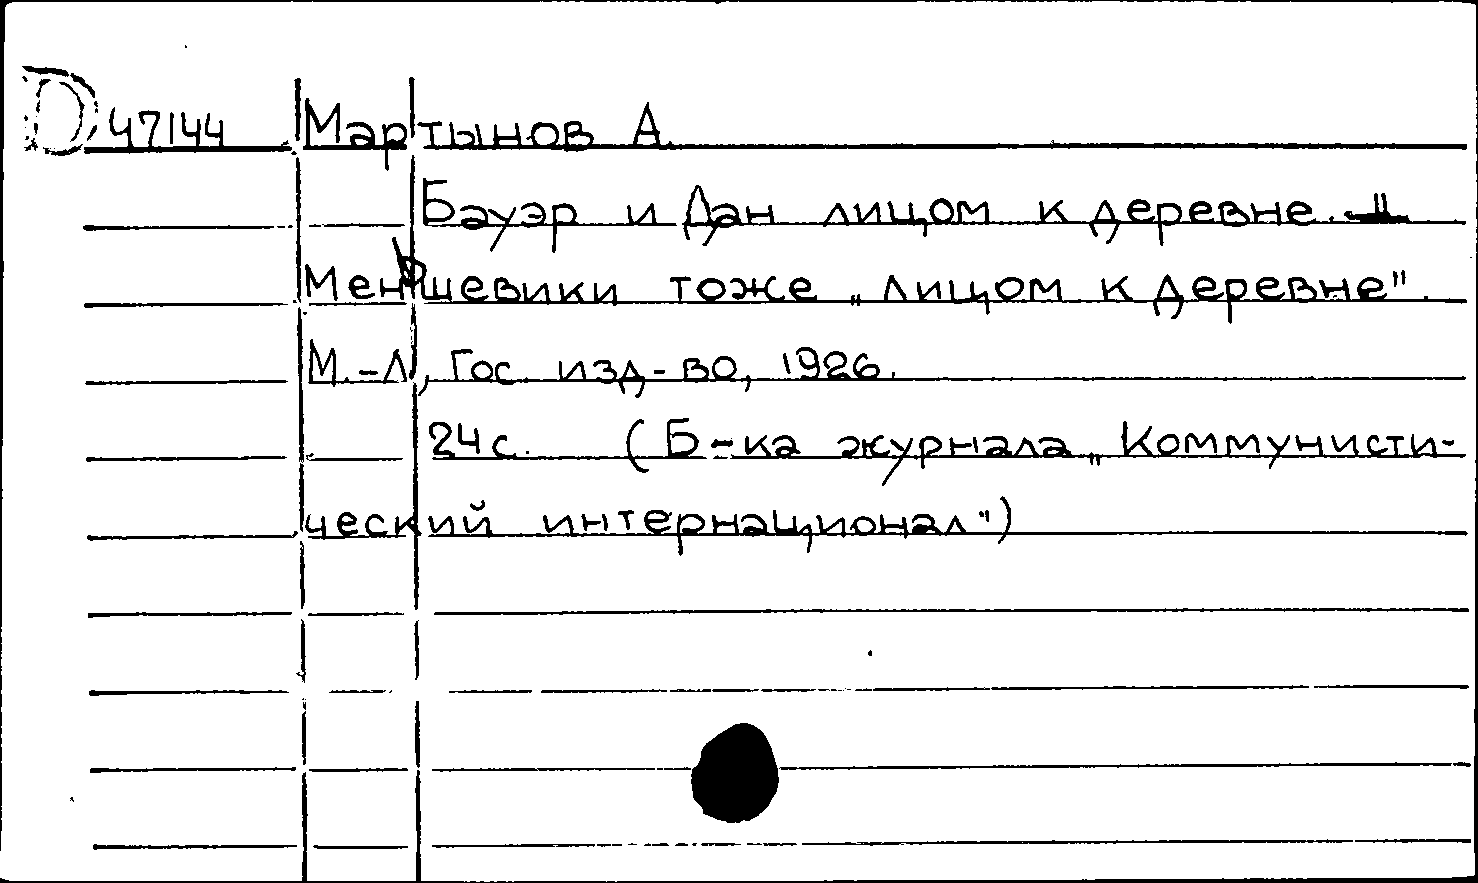 D 47144 Мартынов А.
Бауэр и Дан лицом к деревне.
Меньшевики тоже „лицом к деревне".
М.-Л., Гос. изд-во, 1926.
24 с. (Б-ка журнала „Коммунисти-
ческий интернационал")